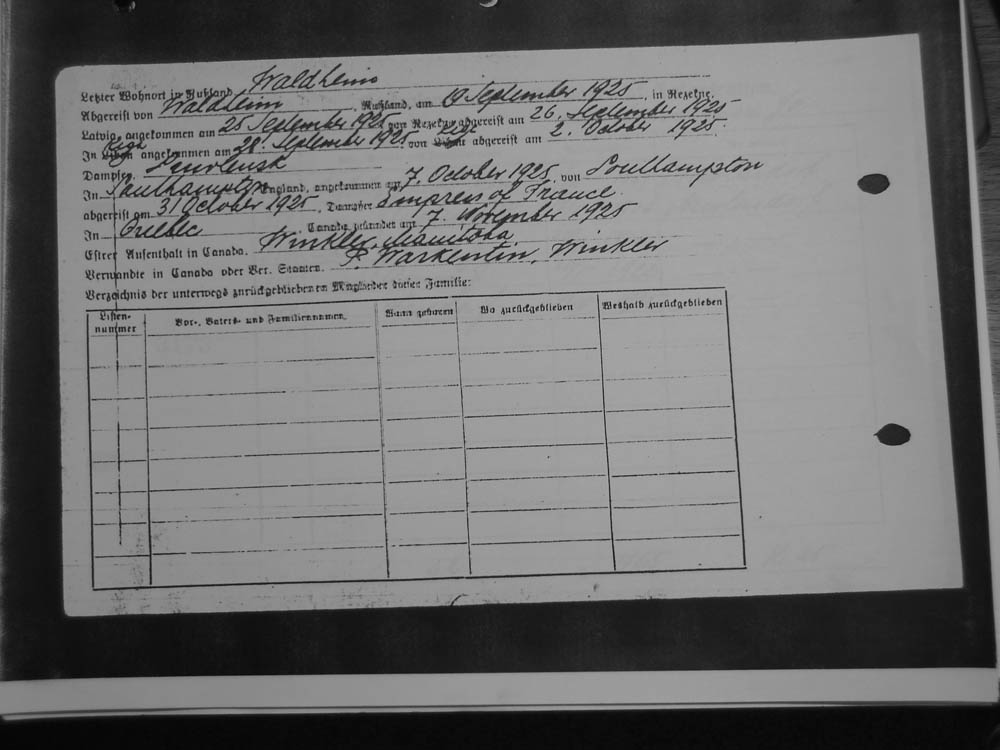 Letzter Wohnort in Rußland Waldheim
Abgereist von Waldheim, Rußland, am 19 September 1925, in Rezekne,
Latvia, angekommen am 25 September 1925 von Rezekne abgereist am 26. September 1925
In Riga angekommen am 28. September 1925 von Riga abgereist am 2. October 1925.
Dampfer
In Southampton England, angekommen am 7. October 1925, von Southampton
abgereist am 31 October 1925, Dampfer Empress of France.
In Quebec, Canada gelandet am 7. November 1925
Erster Aufenthalt in Canada. Winkler, Manitoba
Verwandte in Canada oder Ver. Staaten. P. Warkentin, Winkler
Verzeichnis der unterwegs zurückgebliebenen Mitglieder dieser Familie:
Listen-nummer Vor-, Vaters- und Familiennamen. Wann geboren Wo zurückgeblieben Weshalb zurückgeblieben